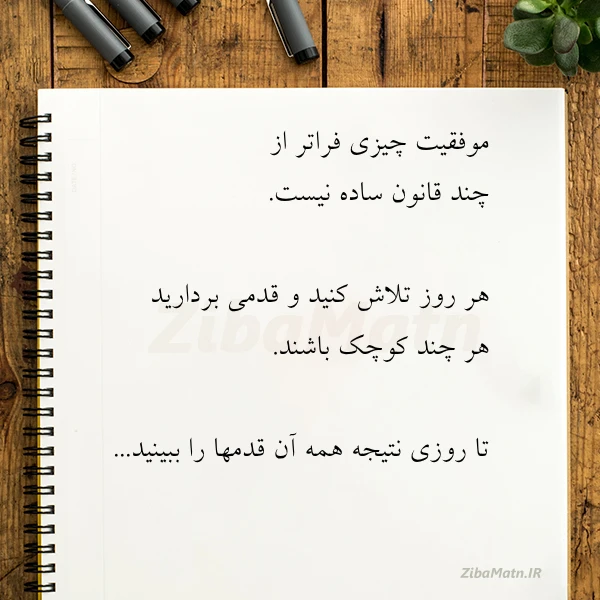 موفقیت چیزی فراتر از
چند قانون ساده نیست.
هر روز تلاش کنید و قدمی بردارید
هر چند کوچک باشند.
تا روزی نتیجه همه آن قدمها را ببینید...
ZibaMatn
ZibaMatn.IR